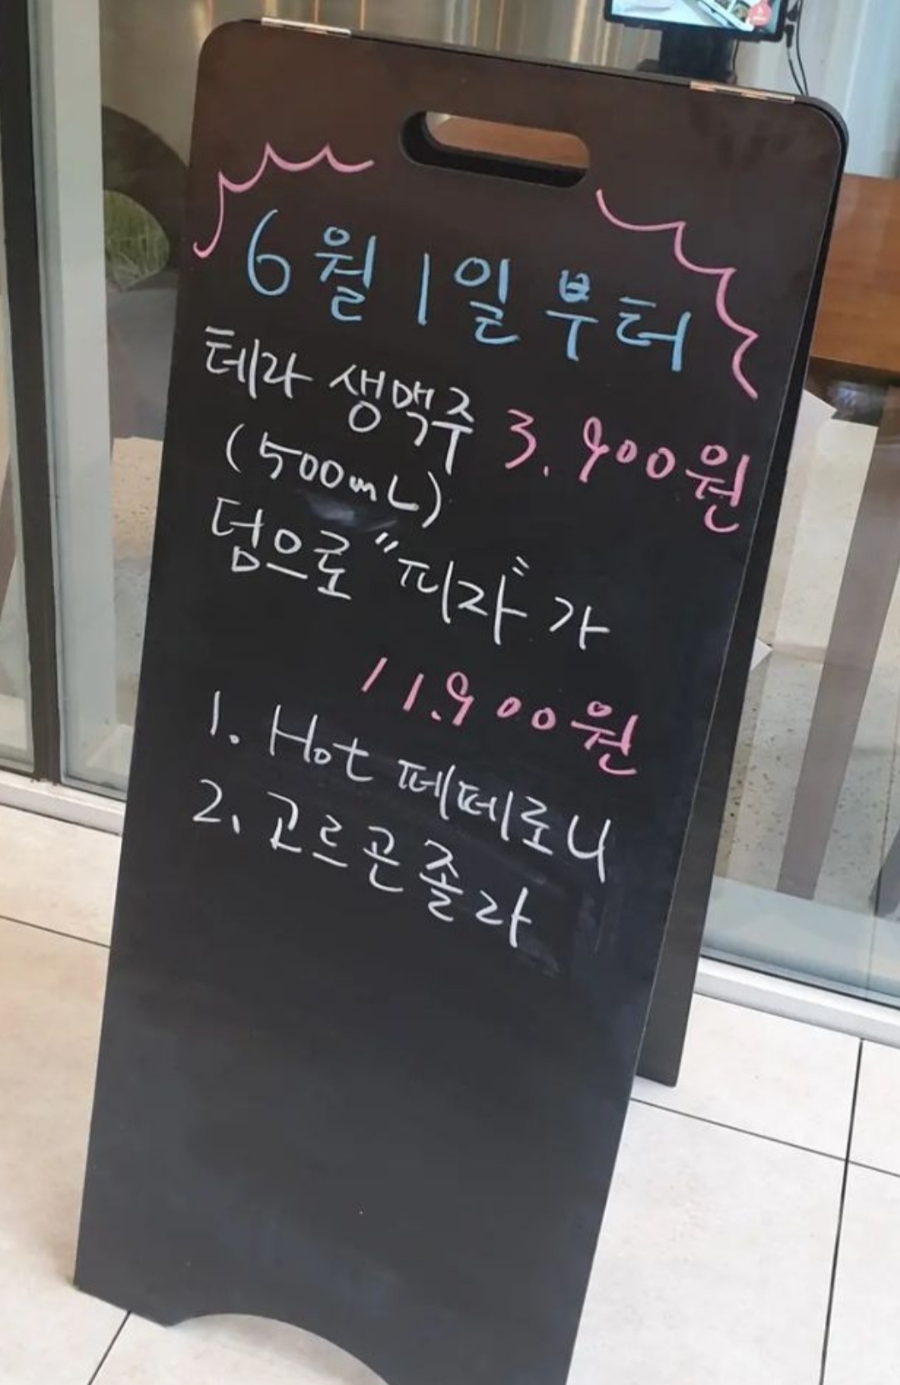 6월 1일부터
테라 생맥주 3.900원
(500mL)
덤으로 "피자"가
11.900원
1. Hot 페페로니
2. 고르곤졸라